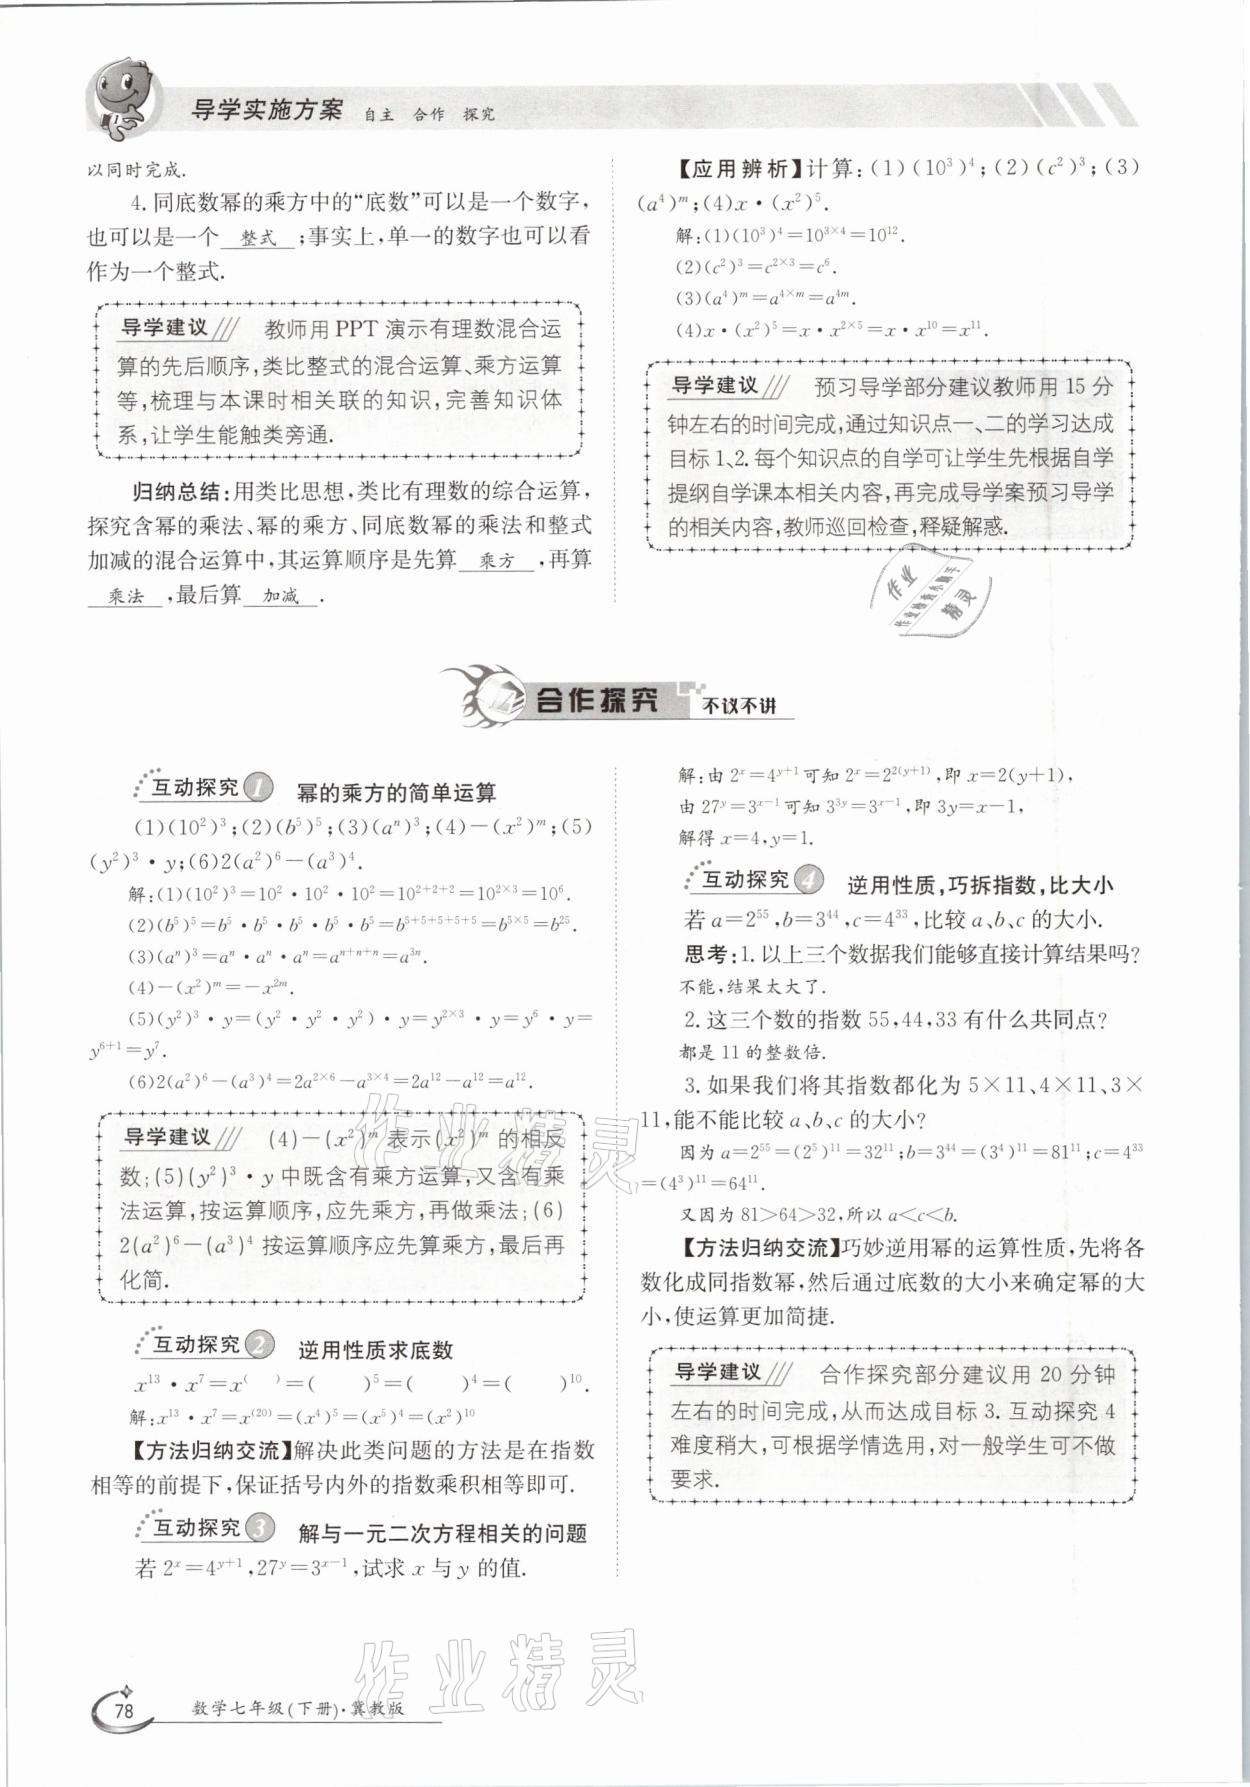 导学实施方案 自主 合作 探究
以同时完成.
4. 同底数幂的乘方中的“底数”可以是一个数字,
也可以是一个 整式 ;事实上,单一的数字也可以看
作为一个整式.
导学建议/// 教师用 PPT 演示有理数混合运
算的先后顺序,类比整式的混合运算、乘方运算
等,梳理与本课时相关联的知识,完善知识体
系,让学生能触类旁通.
归纳总结:用类比思想,类比有理数的综合运算,
探究含幂的乘法、幂的乘方、同底数幂的乘法和整式
加减的混合运算中,其运算顺序是先算 乘方 ,再算
乘法 ,最后算 加减 .
【应用辨析】计算:(1)(10³)⁴;(2)(c²)³;(3)
(a⁴)ᵐ;(4)x·(x²)⁵.
解:(1)(10³)⁴=10³ˣ⁴=10¹².
(2)(c²)³=c²ˣ³=c⁶.
(3)(a⁴)ᵐ=a⁴ˣᵐ=a⁴ᵐ.
(4)x·(x²)⁵=x·x²ˣ⁵=x·x¹⁰=x¹¹.
导学建议/// 预习导学部分建议教师用 15 分
钟左右的时间完成,通过知识点一、二的学习达成
目标 1、2. 每个知识点的自学可让学生先根据自学
提纲自学课本相关内容,再完成导学案预习导学
的相关内容,教师巡回检查,释疑解惑.
作业
作业检查小助手
精灵
合作探究 不议不讲
互动探究 1 幂的乘方的简单运算
(1)(10²)³;(2)(b⁵)⁵;(3)(aⁿ)³;(4)-(x²)ᵐ;(5)
(y²)³·y;(6)2(a²)⁶-(a³)⁴.
解:(1)(10²)³=10²·10²·10²=10²⁺²⁺²=10²ˣ³=10⁶.
(2)(b⁵)⁵=b⁵·b⁵·b⁵·b⁵·b⁵=b⁵⁺⁵⁺⁵⁺⁵⁺⁵=b⁵ˣ⁵=b²⁵.
(3)(aⁿ)³=aⁿ·aⁿ·aⁿ=aⁿ⁺ⁿ⁺ⁿ=a³ⁿ.
(4)-(x²)ᵐ=-x²ᵐ.
(5)(y²)³·y=(y²·y²·y²)·y=y²ˣ³·y=y⁶·y=
y⁶⁺¹=y⁷.
(6)2(a²)⁶-(a³)⁴=2a²ˣ⁶-a³ˣ⁴=2a¹²-a¹²=a¹².
导学建议/// (4)-(x²)ᵐ 表示(x²)ᵐ 的相反
数;(5)(y²)³·y 中既含有乘方运算,又含有乘
法运算,按运算顺序,应先乘方,再做乘法;(6)
2(a²)⁶-(a³)⁴ 按运算顺序应先算乘方,最后再
化简.
互动探究 2 逆用性质求底数
x¹³·x⁷=x⁽ ⁾=( )⁵=( )⁴=( )¹⁰.
解:x¹³·x⁷=x⁽²⁰⁾=(x⁴)⁵=(x⁵)⁴=(x²)¹⁰
【方法归纳交流】解决此类问题的方法是在指数
相等的前提下,保证括号内外的指数乘积相等即可.
互动探究 3 解与一元二次方程相关的问题
若 2ˣ=4ʸ⁺¹,27ʸ=3ˣ⁻¹,试求 x 与 y 的值.
解:由 2ˣ=4ʸ⁺¹可知 2ˣ=2²⁽ʸ⁺¹⁾,即 x=2(y+1),
由 27ʸ=3ˣ⁻¹可知 3³ʸ=3ˣ⁻¹,即 3y=x-1,
解得 x=4,y=1.
互动探究 4 逆用性质,巧拆指数,比大小
若 a=2⁵⁵,b=3⁴⁴,c=4³³,比较 a、b、c 的大小.
思考:1. 以上三个数据我们能够直接计算结果吗?
不能,结果太大了.
2. 这三个数的指数 55,44,33 有什么共同点?
都是 11 的整数倍.
3. 如果我们将其指数都化为 5×11、4×11、3×
11,能不能比较 a、b、c 的大小?
因为 a=2⁵⁵=(2⁵)¹¹=32¹¹;b=3⁴⁴=(3⁴)¹¹=81¹¹;c=4³³
=(4³)¹¹=64¹¹.
又因为 81>64>32,所以 a<c<b.
【方法归纳交流】巧妙逆用幂的运算性质,先将各
数化成同指数幂,然后通过底数的大小来确定幂的大
小,使运算更加简捷.
导学建议/// 合作探究部分建议用 20 分钟
左右的时间完成,从而达成目标 3. 互动探究 4
难度稍大,可根据学情选用,对一般学生可不做
要求.
作业精灵
作业精灵
78 数学七年级(下册)·冀教版